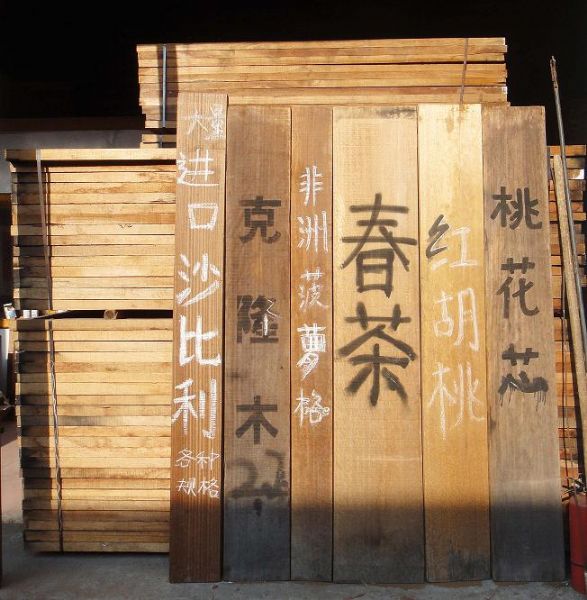 大量
进口
沙比利
各种
规格
克隆木
非洲菠萝格
春茶
红胡桃
桃花芯